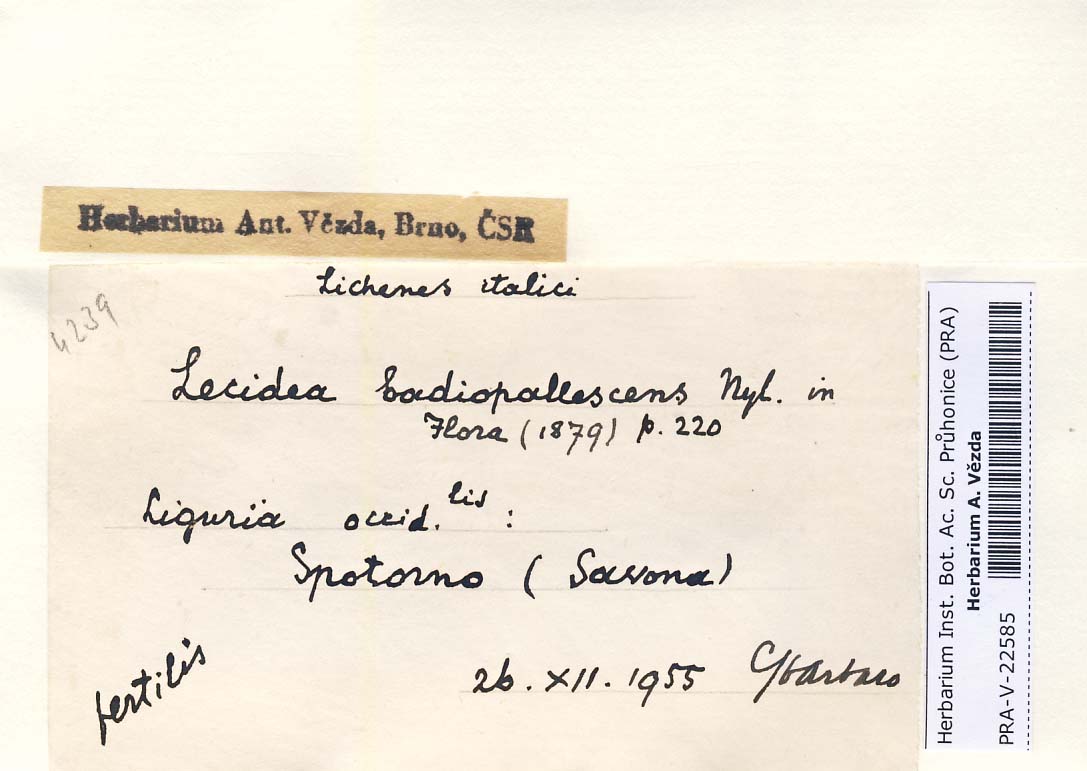 Herbarium Ant. Vězda, Brno, ČSR
Lichenes italici
4239
Lecidea badiopallescens Nyl. in
Flora (1879) p. 220
Liguria occid.lis :
Spotorno (Savona)
fertilis
26. XII. 1955
Herbarium Inst. Bot. Ac. Sc. Průhonice (PRA)
Herbarium A. Vězda
PRA-V-22585